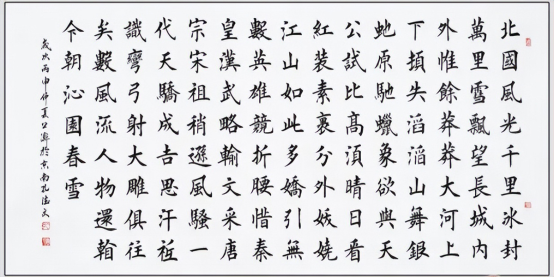 北國風光千里冰封
萬里雪飄望長城内
外惟餘莽莽大河上
下頓失滔滔山舞銀
虵原馳蠟象欲與天
公試比髙須晴日看
紅裝素裹分外妖嬈
江山如此多嬌引無
數英雄競折腰惜秦
皇漢武略輸文采唐
宗宋祖稍遜風騷一
代天驕成吉思汗衹
識彎弓射大雕俱往
矣數風流人物還看
今朝沁園春雪
歲次丙申仲夏於京南